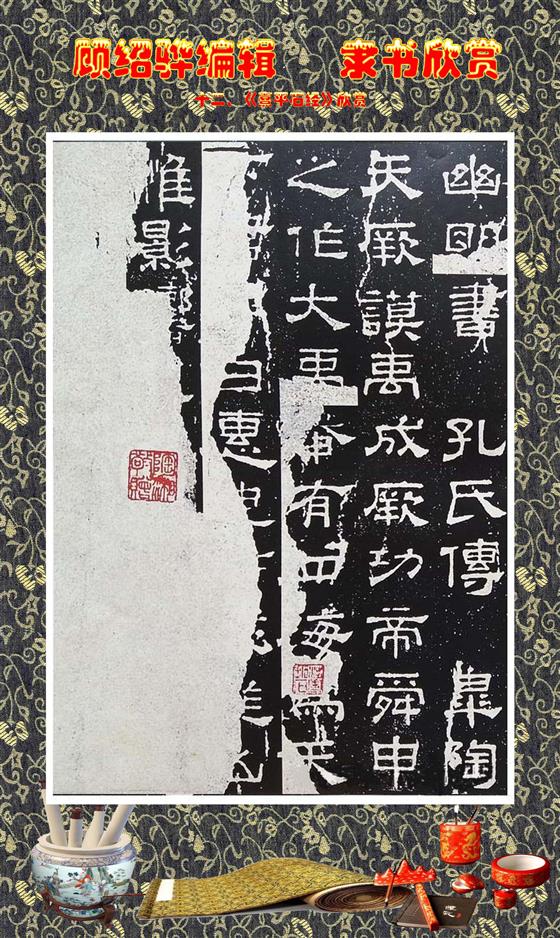 顾绍骅编辑 隶书欣赏
十二、《熹平石经》欣赏
幽明書 孔氏傳 皋陶
矢厥謨禹成厥功帝舜申
之作大禹奄有四海為天
曰惠迪
惟影